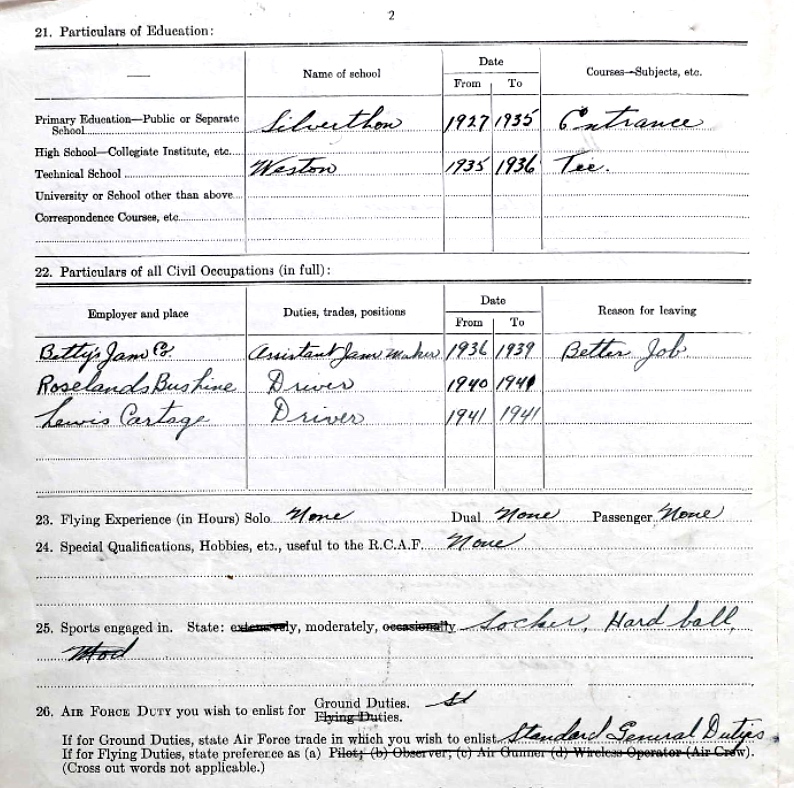 2
21. Particulars of Education:
Name of school
Date
From To
Courses—Subjects, etc.
Primary Education—Public or Separate
School Silverthon 1927 1935 Entrance
High School—Collegiate Institute, etc.
Technical School Weston 1935 1936 Tec.
University or School other than above
Correspondence Courses, etc.
22. Particulars of all Civil Occupations (in full):
Employer and place
Duties, trades, positions
Date
From To
Reason for leaving
Betty's Jam Co. Assistant Jam Maker 1936 1939 Better Job
Roselands Bushine Driver 1940 1941
Lewis Cartage Driver 1941 1941
23. Flying Experience (in Hours) Solo None Dual None Passenger None
24. Special Qualifications, Hobbies, etc., useful to the R.C.A.F. None
25. Sports engaged in. State: extensively, moderately, occasionally Socker, Hard ball,
Mod
26. AIR FORCE DUTY you wish to enlist for Ground Duties. Sd
Flying Duties.
If for Ground Duties, state Air Force trade in which you wish to enlist Standard General Duties
If for Flying Duties, state preference as (a) Pilot; (b) Observer; (c) Air Gunner (d) Wireless Operator (Air Crew).
(Cross out words not applicable.)